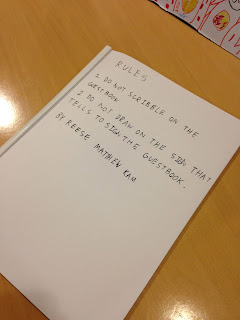 RULES
1. DO NOT SCRIBBLE ON THE
GUESTBOOK
2 DO NOT DRAW ON THE SIGN THAT
TELLS TO SIGN THE GUESTBOOK.
BY REESE MATTHEW KAM